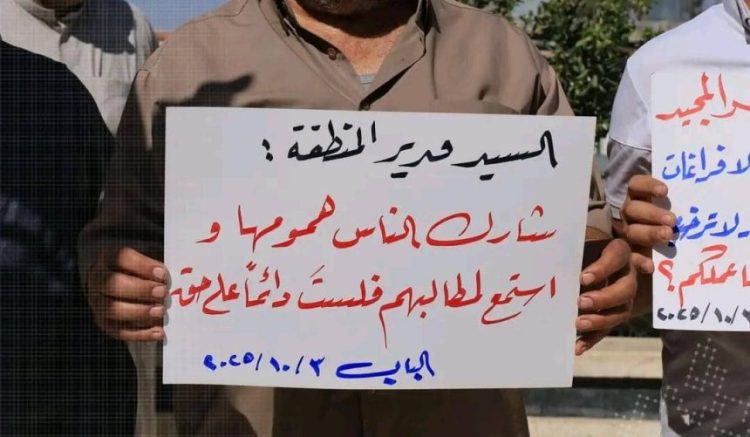 السيد مدير المنطقة :
شارك الناس همومها و
استمع لمطالبهم فلستَ دائماً على حق
الباب ٢٠٢٥/١٠/٣
المجيد
لا فراغات
عملكم ؟
٢٠٢٥/١٠/٣